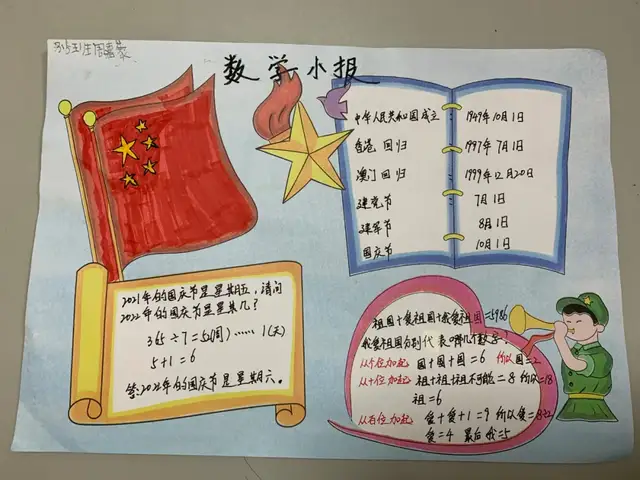 数学小报
中华人民共和国成立：1949年10月1日
香港回归：1997年7月1日
澳门回归：1999年12月20日
建党节：7月1日
建军节 8月1日
国庆节 10月1日
2021年的国庆节是星期五，请问
2022年的国庆节是星期几？
365÷7=52(周)……1(天)
5+1=6
答：2022年的国庆节是星期六。
祖国+爱祖国+我爱祖国=5986
我爱祖国分别代表哪几个数字。
从个位加起：国+国+国=6 所以国=2
从十位加起：祖+祖+祖不可能=8 所以=18
祖=6
从百位加起：爱+爱+1=9 所以爱=8÷2
爱=4 最后我=5